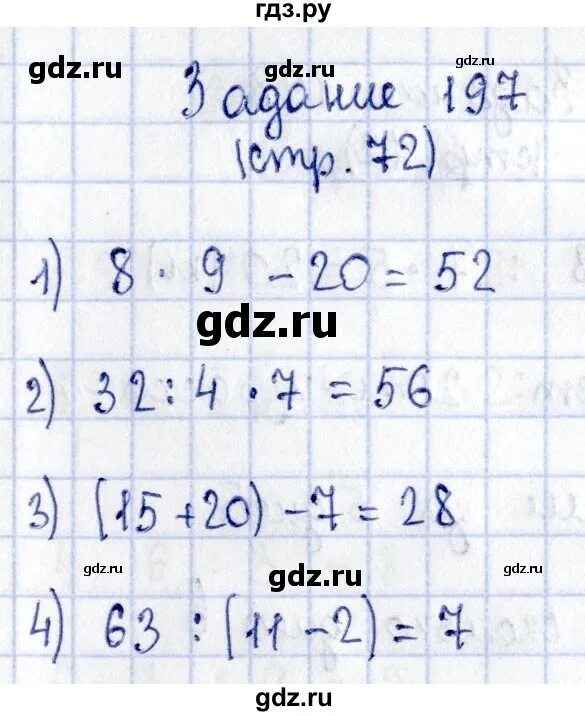 гдз.ру
gdz.ru
gdz.ru
gdz.ru
Задание 197
(стр. 72)
1) 8 · 9 - 20 = 52
gdz.ru
2) 32 : 4 · 7 = 56
3) (15 + 20) - 7 = 28
gdz.ru
gdz.ru
gdz.ru
4) 63 : (11 - 2) = 7
gdz.ru